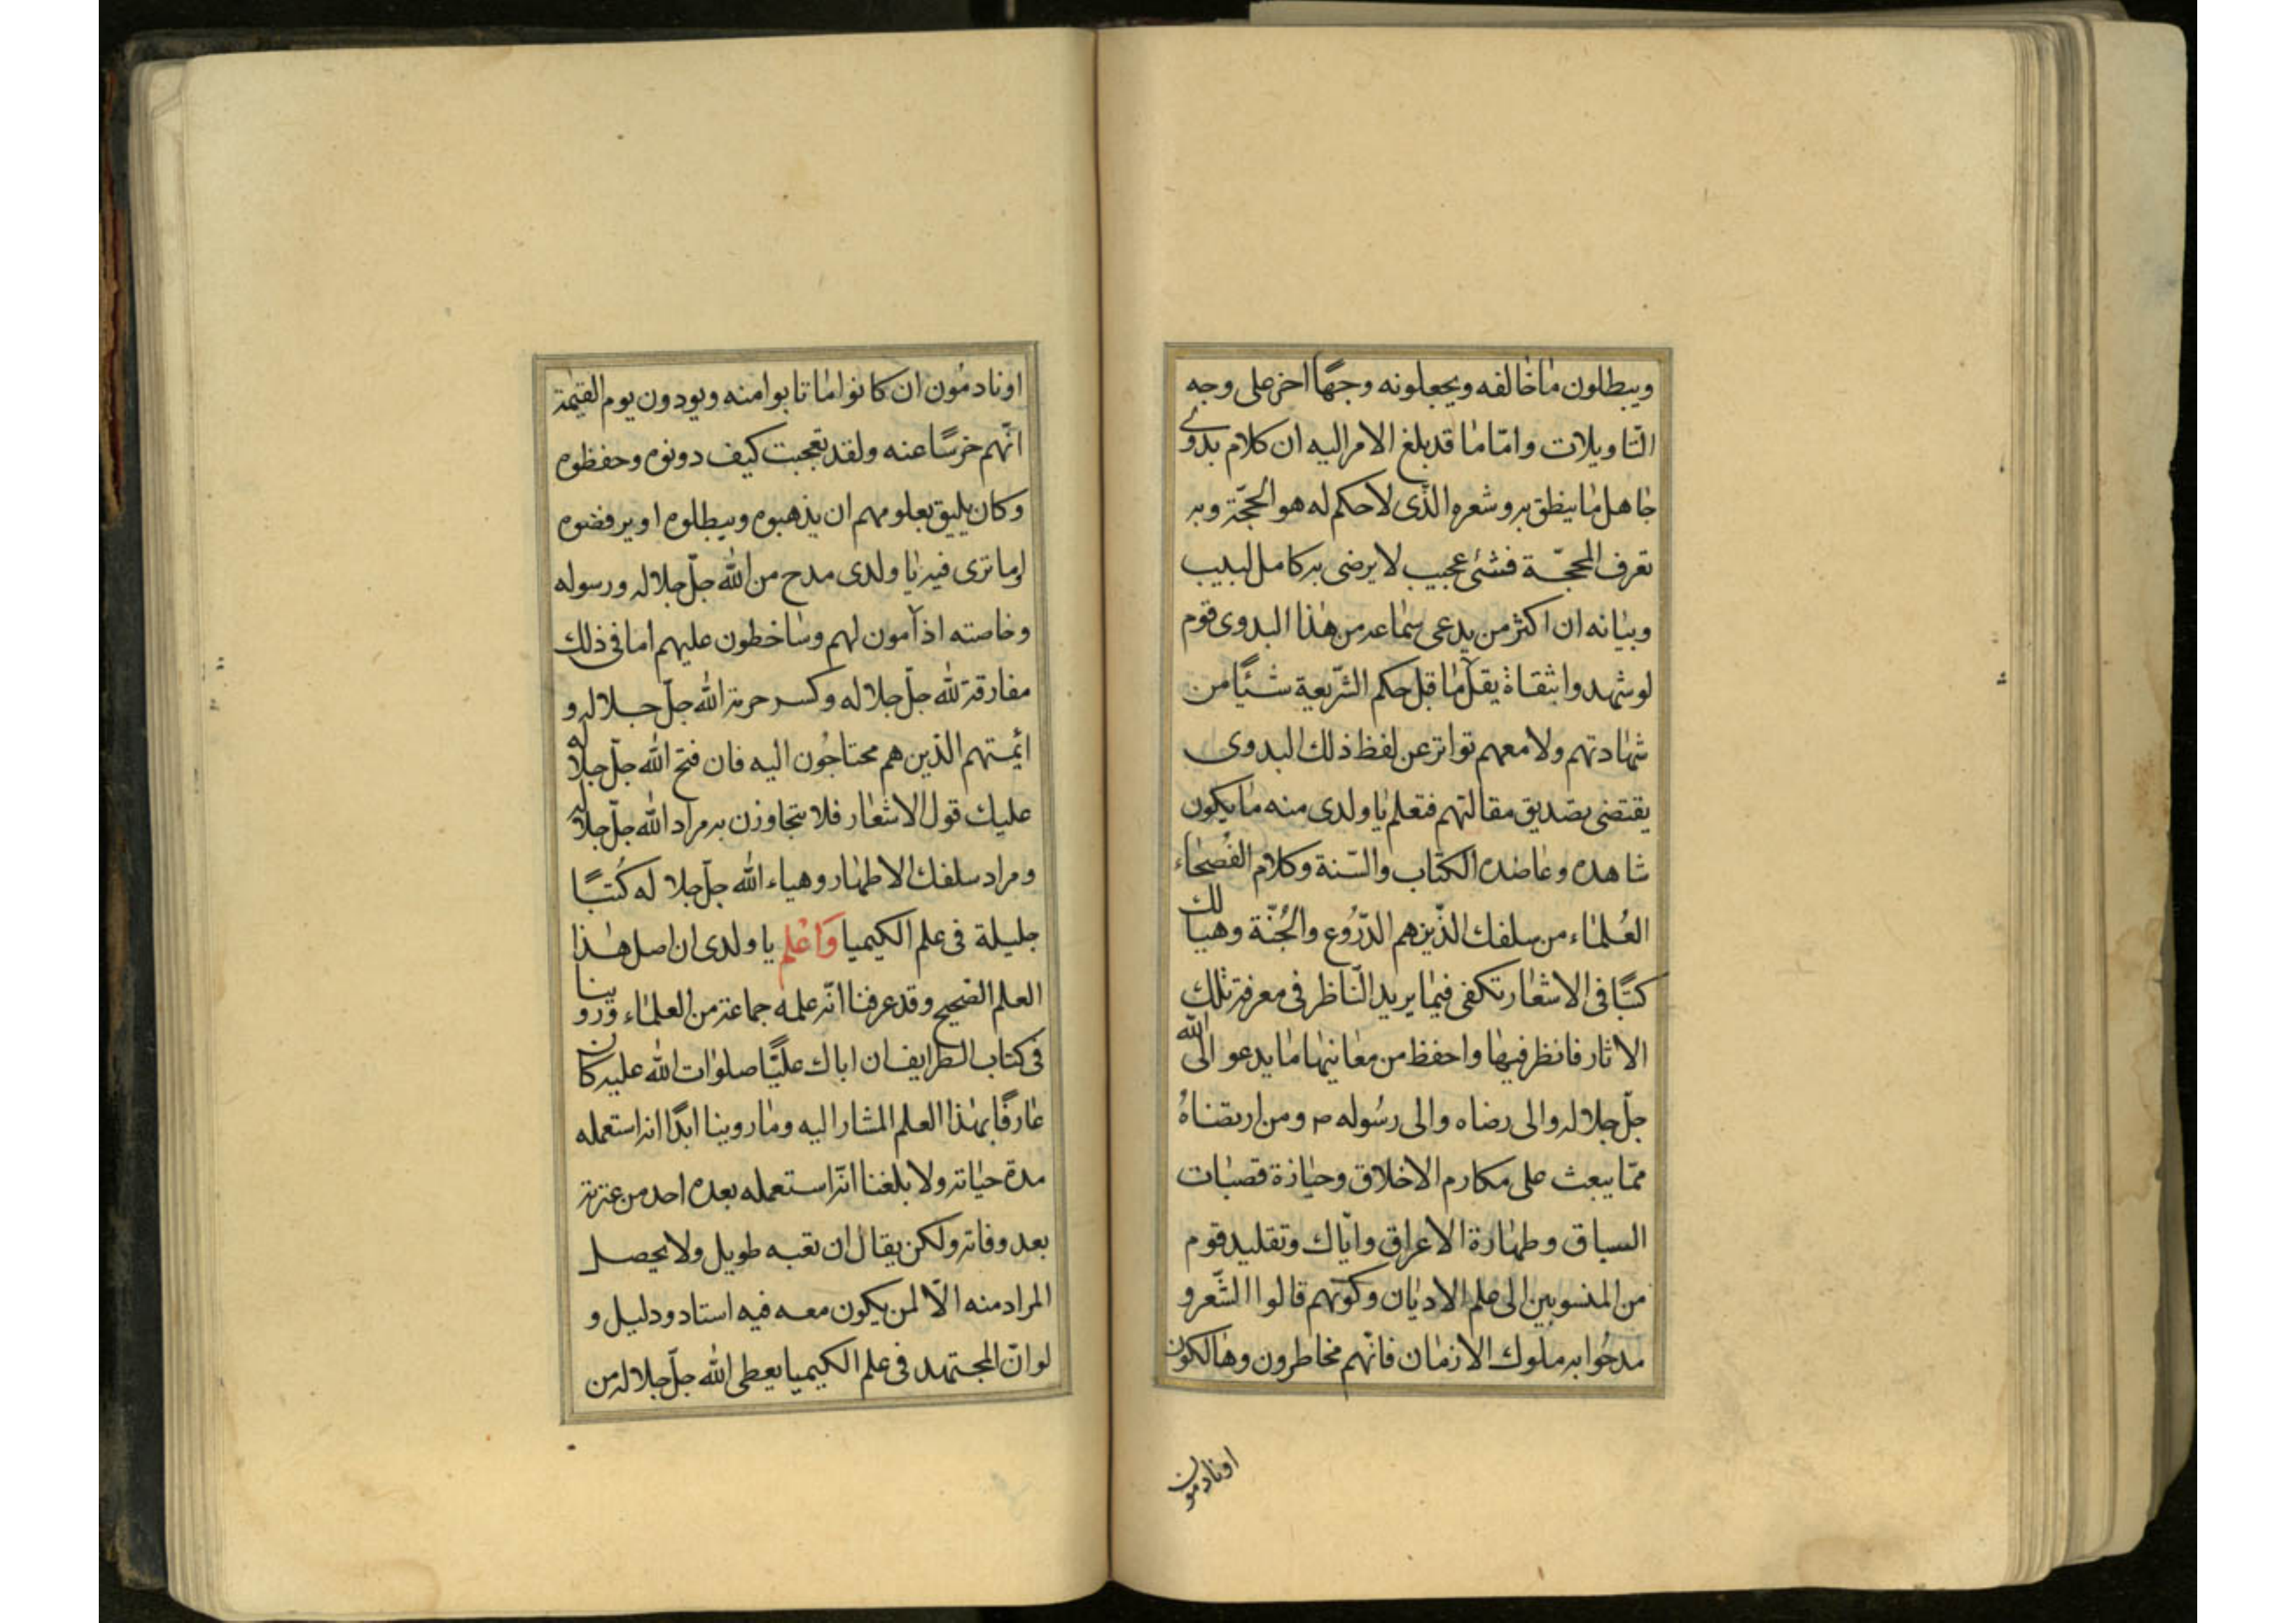 ويبطلون ما خالفه ويجعلونه وجهًا اخر على وجه
التاويلات وامّا ما قد بلغ الامر اليه ان كلام بدوى
جاهل ما ينطق به وشعره الذى لاحكم له هو الحجّة وبه
تعرف المحجّة فشئ عجيب لا يرضى به كامل لبيب
وبيانه ان اكثر من يدعى سماعه من هذا البدوى قوم
لو شهدوا بثقاة يقل ما قبل حكم الشّريعة شيئًا من
شهادتهم ولا معهم تواتر عن لفظ ذلك البدوى
يقتضى تصديق مقالتهم فتعلم يا ولدى منه ما يكون
شاهده وعاضده الكتاب والسّنة وكلام الفُصحاء
العُلماء من سلفك الذّين هم الدّرُوع والجُنّة وهيا لك
كتبًا فى الاشعار تكفى فيما يريد النّاظر فى معرفة تلك
الاثار فانظر فيها واحفظ من معانيها ما يدعو الى الله
جلّ جلاله والى رضاه والى رسُوله ص ومن ارتضاهُ
ممّا يبعث على مكارم الاخلاق وحيازة قصبات
السباق وطهارة الاعراق وايّاك وتقليد قوم
من المنسوبين الى علم الاديان وكونهم قالوا الشّعر و
مدحُوا به ملوك الازمان فانّهم مخاطرون وهالكون
اونادمون
اونادمُون ان كانوا ما تابوا منه ويودون يوم القيمة
انّهم خرسًا عنه ولقد تعجبت كيف دونوه وحفظوه
وكان يليق بعلومهم ان يذهبوه ويبطلوه او يرفضوه
اوما ترى فيه يا ولدى مدح من الله جلّ جلاله ورسوله
وخاصته اذآمون لهم وساخطون عليهم اما فى ذلك
مفارقة لله جلّ جلاله وكسر حرمة الله جلّ جلاله و
ائيمتهم الذين هم محتاجُون اليه فان فتح الله جلّ جلاله
عليك قول الاشعار فلا تتجاوزن به مراد الله جلّ جلاله
ومراد سلفك الاطهار وهياء الله جلّ جلا له كُتبًا
جليلة فى علم الكيميا وَاعْلم يا ولدى ان اصل هذا
العلم الصّحيح وقد عرفنا انّه علمه جماعة من العلماء وروينا
فى كتاب الطرايف ان اباك عليًّا صلوات الله عليه كان
عارفًا بهذا العلم المشار اليه وما روينا ابدًا انه استعمله
مدة حياته ولا بلغنا انّه استعمله بعده احد من عترته
بعد وفاته ولكن يقال ان تعبه طويل ولا يحصل
المراد منه الّا لمن يكون معه فيه استاد ودليل و
لو انّ المجتهد فى علم الكيميا يعطى الله جلّ جلاله من